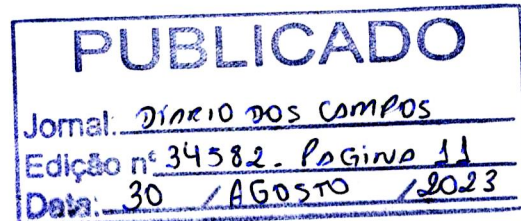 PUBLICADO
Jornal: DIARIO DOS CAMPOS
Edição nº 34582 - PAGINA 11
Data: 30 / AGOSTO / 2023